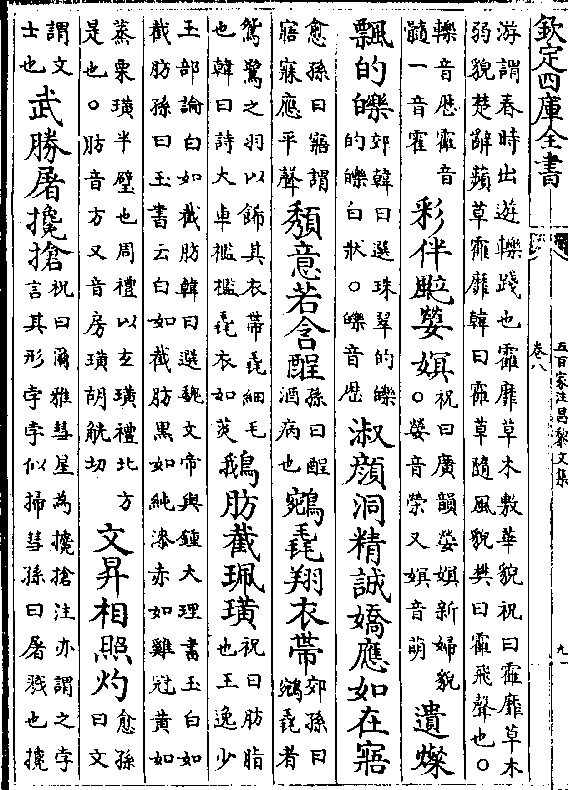 欽定四庫全書
五百家注昌黎文集
卷八
九
游謂春時出遊轢踐也靃靡草木敷華貌祝曰靃靡草木
弱貌楚辭蘋草靃靡韓曰靃草隨風貌樊曰靃飛聲也○
轢音歷靃音
髓一音霍
彩伴颭嫈嫇
祝曰廣韻嫈嫇新婦貌
○嫈音縈又嫇音萌
遺燦
飄的皪
郊韓曰選珠翠的皪
的皪白狀○皪音歷
淑顏洞精誠嬌應如在寤
愈孫曰寤謂
寤寐應平聲
頺意若含酲
孫曰酲
酒病也
鵷毳翔衣帶
郊孫曰
鵷毳者
鴛鷺之羽以飾其衣帶毳細毛
也韓曰詩大車檻檻毳衣如菼
鵝肪截珮璜
祝曰肪脂
也王逸少
玉部論白如截肪韓曰選魏文帝與鍾大理書玉白如
截肪孫曰玉書云白如截肪黑如純漆赤如雞冠黃如
蒸栗璜半璧也周禮以玄璜禮北方
是也○肪音方又音房璜胡觥切
文昇相照灼
愈孫
曰文
謂文
士也
武勝屠攙搶
祝曰爾雅彗星為攙搶注亦謂之孛
言其形孛孛似掃彗孫曰屠戮也攙